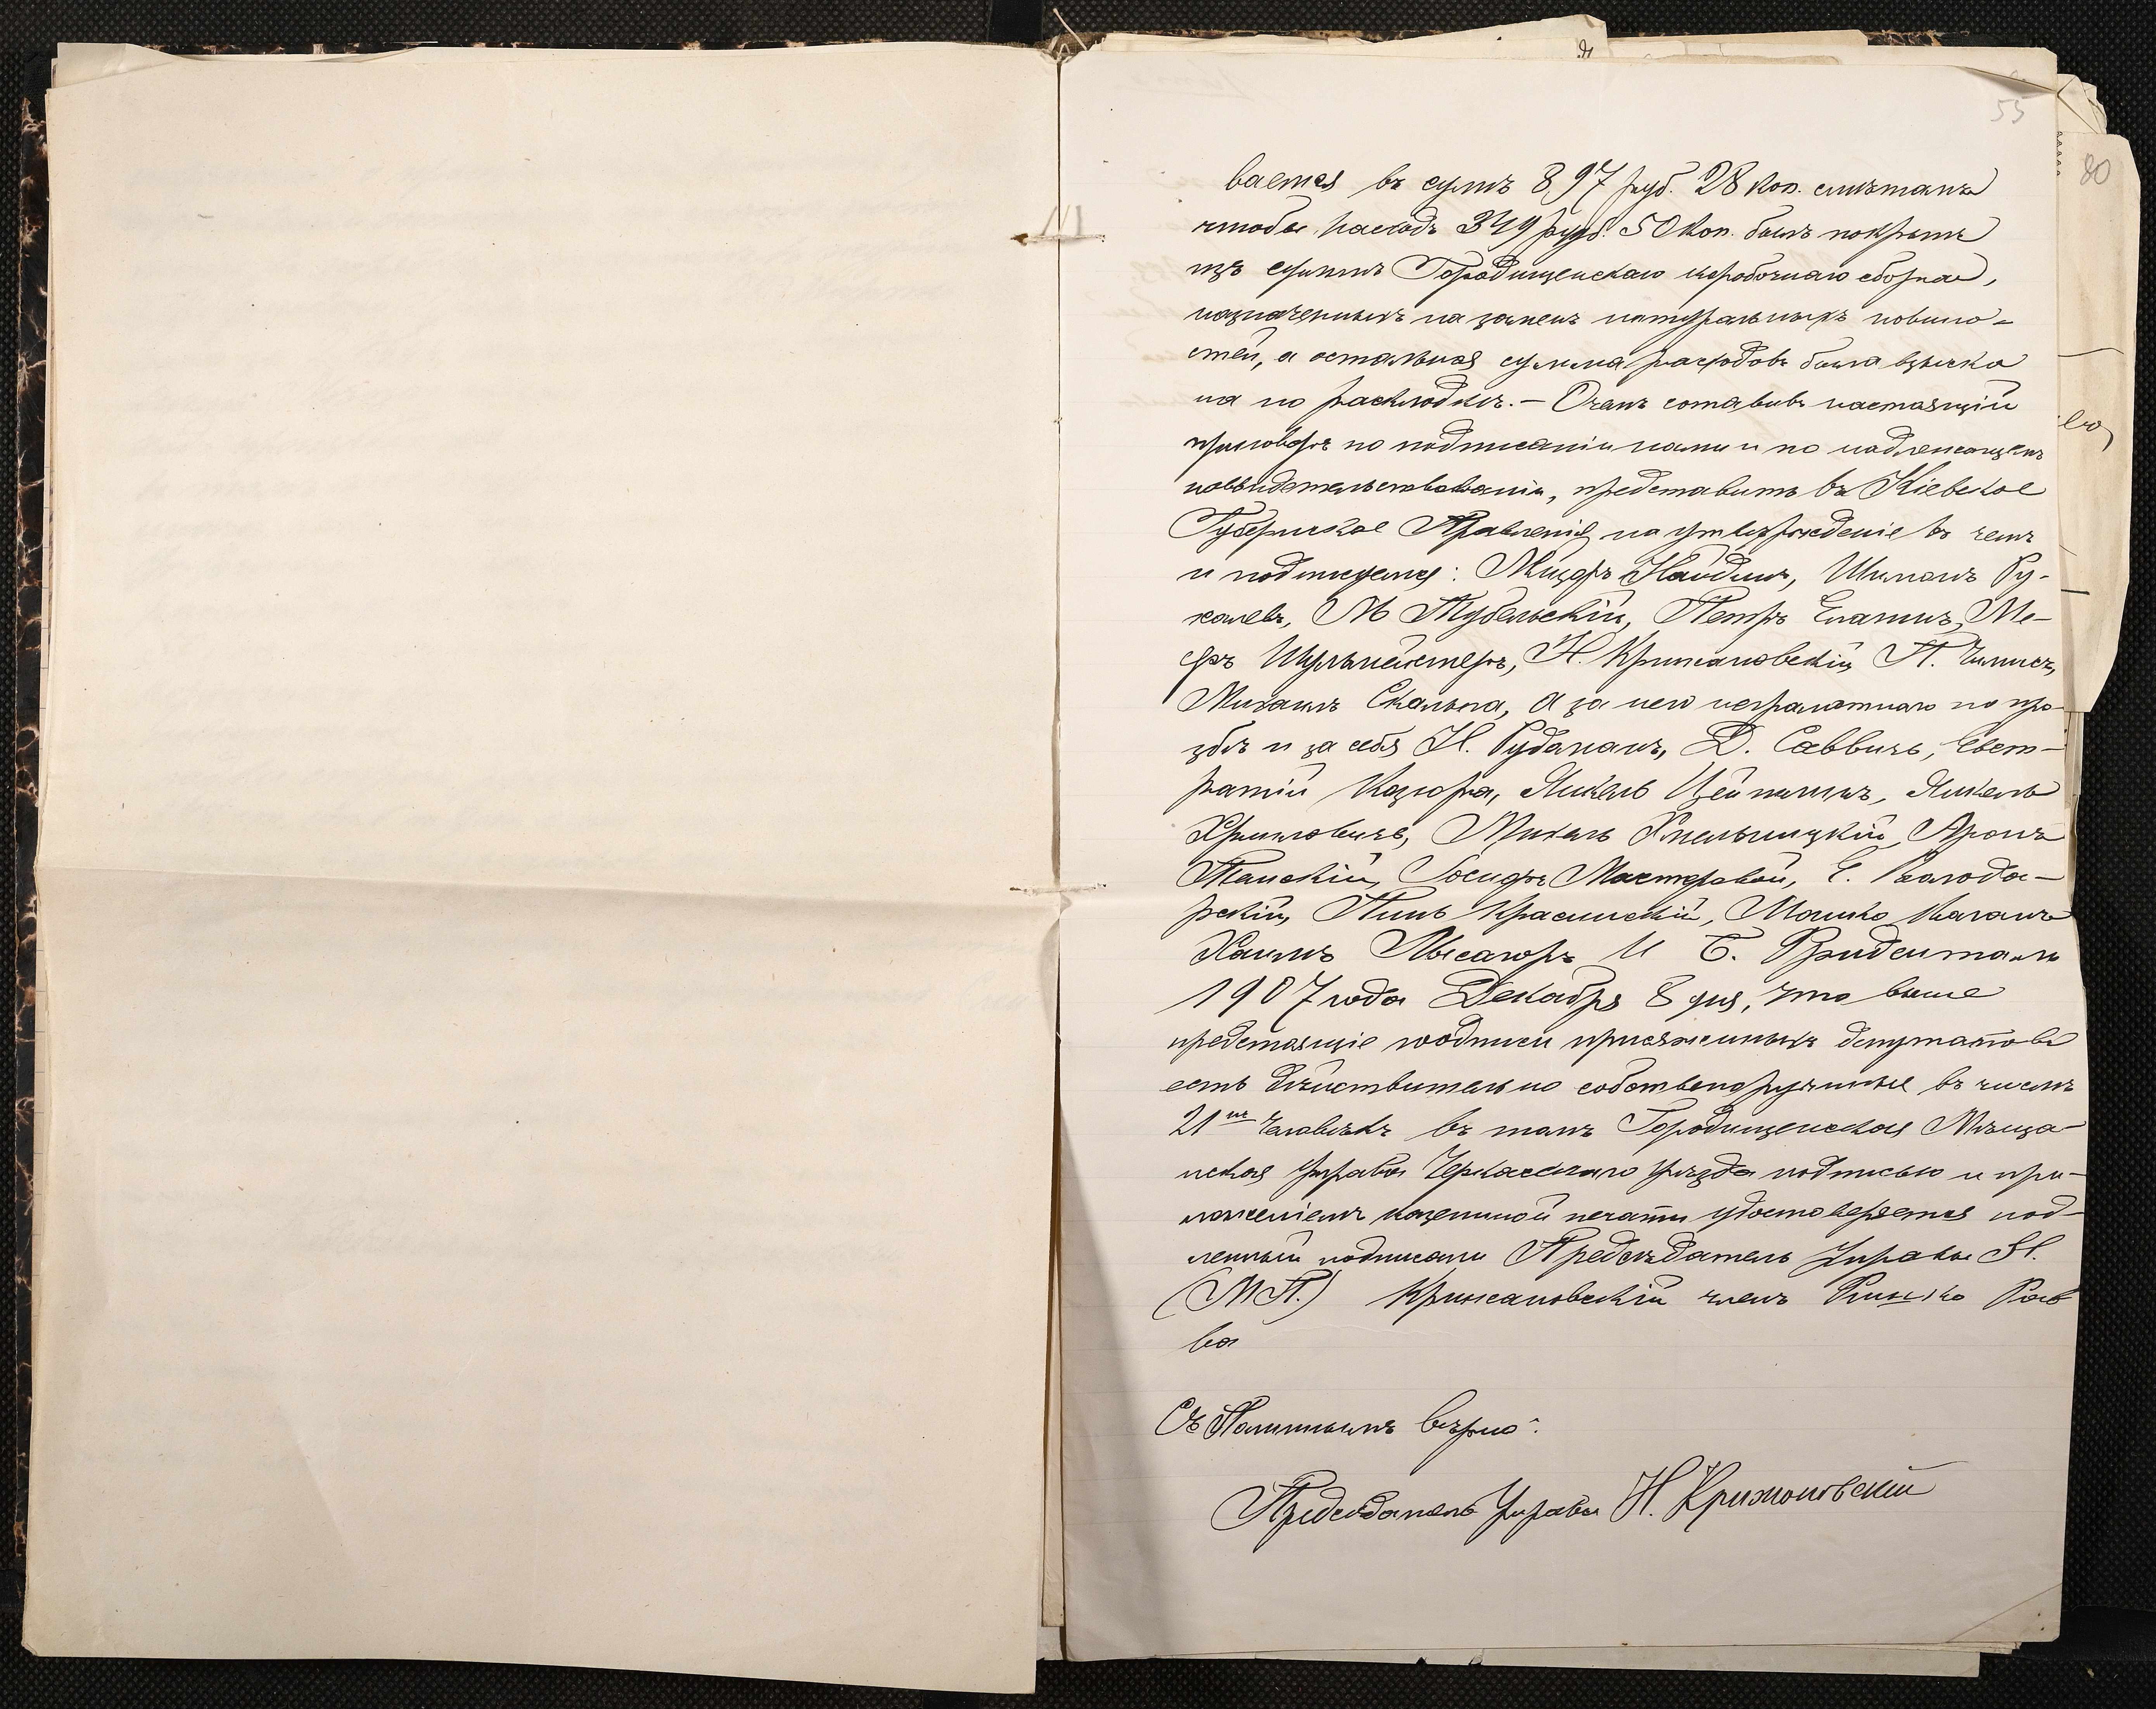 55
80
вается въ сумѣ 897 руб. 28 коп. смѣтана
чтобы расходъ 349 руб. 50 коп. былъ покрытъ
изъ сумы Городищенскаго коробочнаго сбора,
назначенныхъ на замену натуральныхъ повино-
стей, а остальная сумма расходовъ была взыска
на по раскладкѣ. — О чемъ составивъ настоящій
приговоръ по подписаніи нами и по надлежащемъ
засвидетельствованіи, представить въ Кіевское
Губернское Правленіе на утвержденіе въ чемъ
и подписуемся: Найдисъ, Шимонъ Ру-
халевъ, М Тубельскій, Петръ Ме-
еръ Шульмейстеръ, Н. Крижановскій, П.
Михаилъ Скалыга, а за него неграмотнаго по про-
збѣ и за себя Н. Рудаканъ, Д. Саввичъ, Евст-
ратій Козюра, Янкель Янкель
Хаимовичъ, Михель Хмельницкій, Аронъ
Танскій, Іосифъ Мастеровой, Е. Валода-
рскій, Пинь Красинскій, Мошко Каганъ
Хаимъ Лысагоръ И Б. Фриденталь
1907 года Декабря 8 дня, что выше
предстоящіе подписи присяженныхъ депутатовъ
есть дѣйствительно собственоручные въ числѣ
21 го человѣкъ въ томъ Городищенская Мѣща-
нская Управа Черкасскаго уѣзда подписью и при-
ложеніемъ казенной печати удостоверяется под-
ленный подписали Предсѣдатель Управы Н.
(М П.) Крижановскій членъ
ва
Съ Подлиннымъ вѣрно:
Предсѣдатель Управы Н. Крижановскій